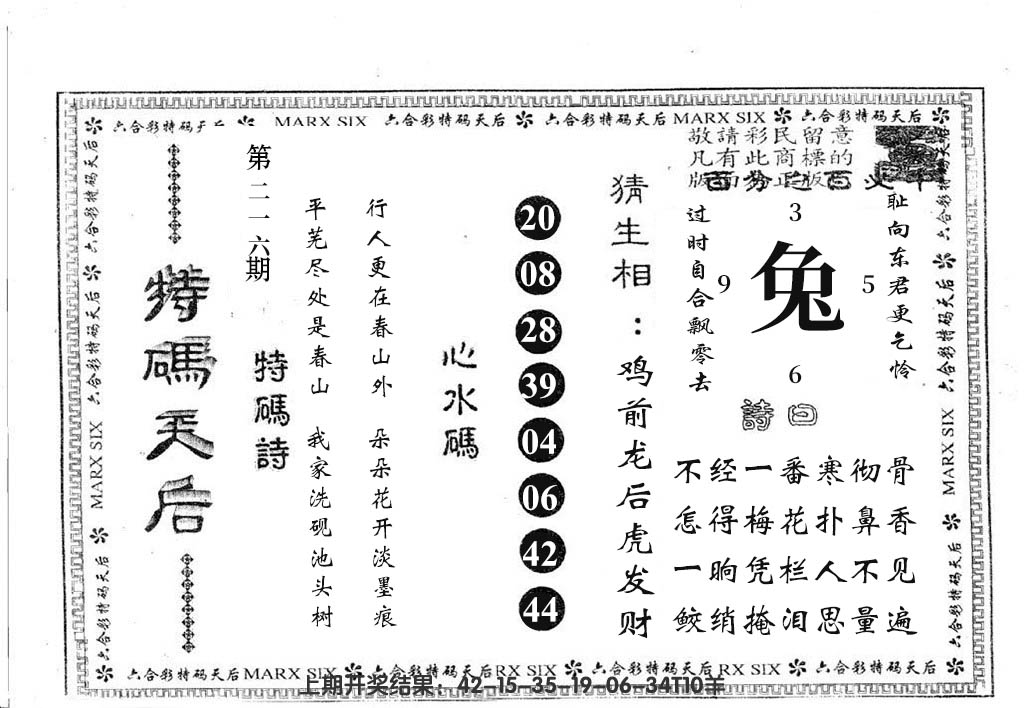 六合彩特码 MARX SIX 六合彩特码天后 六合彩特码天后 MARX SIX 六合彩特码天后
六合彩特码天后 六合彩特码天后 MARX SIX 六合彩特码天后
特碼天后
第二一六期
特碼詩
平芜尽处是春山 我家洗砚池头树
行人更在春山外 朵朵花开淡墨痕
心水碼
20
08
28
39
04
06
42
44
猜生相：鸡前龙后虎发财
敬請彩民留意
凡有此商標的
版面為正版
过时自合飘零去
3
9 兔 5
6
耻向东君更乞怜
詩曰
不经一番寒彻骨
怎得梅花扑鼻香
一晌凭栏人不见
鲛绡掩泪思量遍
六合彩特码天后 六合彩特码天后 MARX SIX 六合彩特码天后
六合彩特码天后 MARX SIX 六合彩特码天后 RX SIX 六合彩特码天后 RX SIX 六合彩特码天后
上期开奖结果：42-15-35-19-06-34T10羊